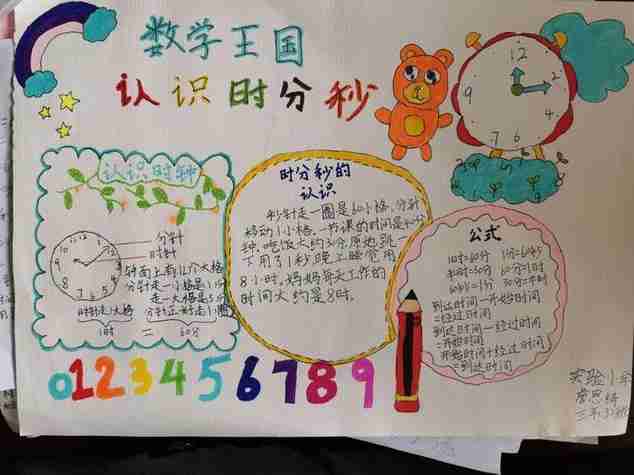 数学王国
认识时分秒
12
2
4
6
7
9
认识时钟
分针
时针
钟面上有12个大格
分针走一小格是1分
走一大格是5分
时针走1大格
分针正好走1圈
1时 = 60分
时分秒的
认识
秒针走一圈是60小格,分针
移动1小格。一节课的时间是40分
钟。吃饭大约
下用了1秒晚上睡觉用
8小时。妈妈每天工作的
时间大约是8时。
公式
1时=60分 1分=60秒
半时=30分 60分=1时
60秒=1分 30分=半时
到达时间-开始时间
=经过时间
到达时间-经过时间
=开始时间
开始时间+经过时间
=到达时间
0123456789
实验小学